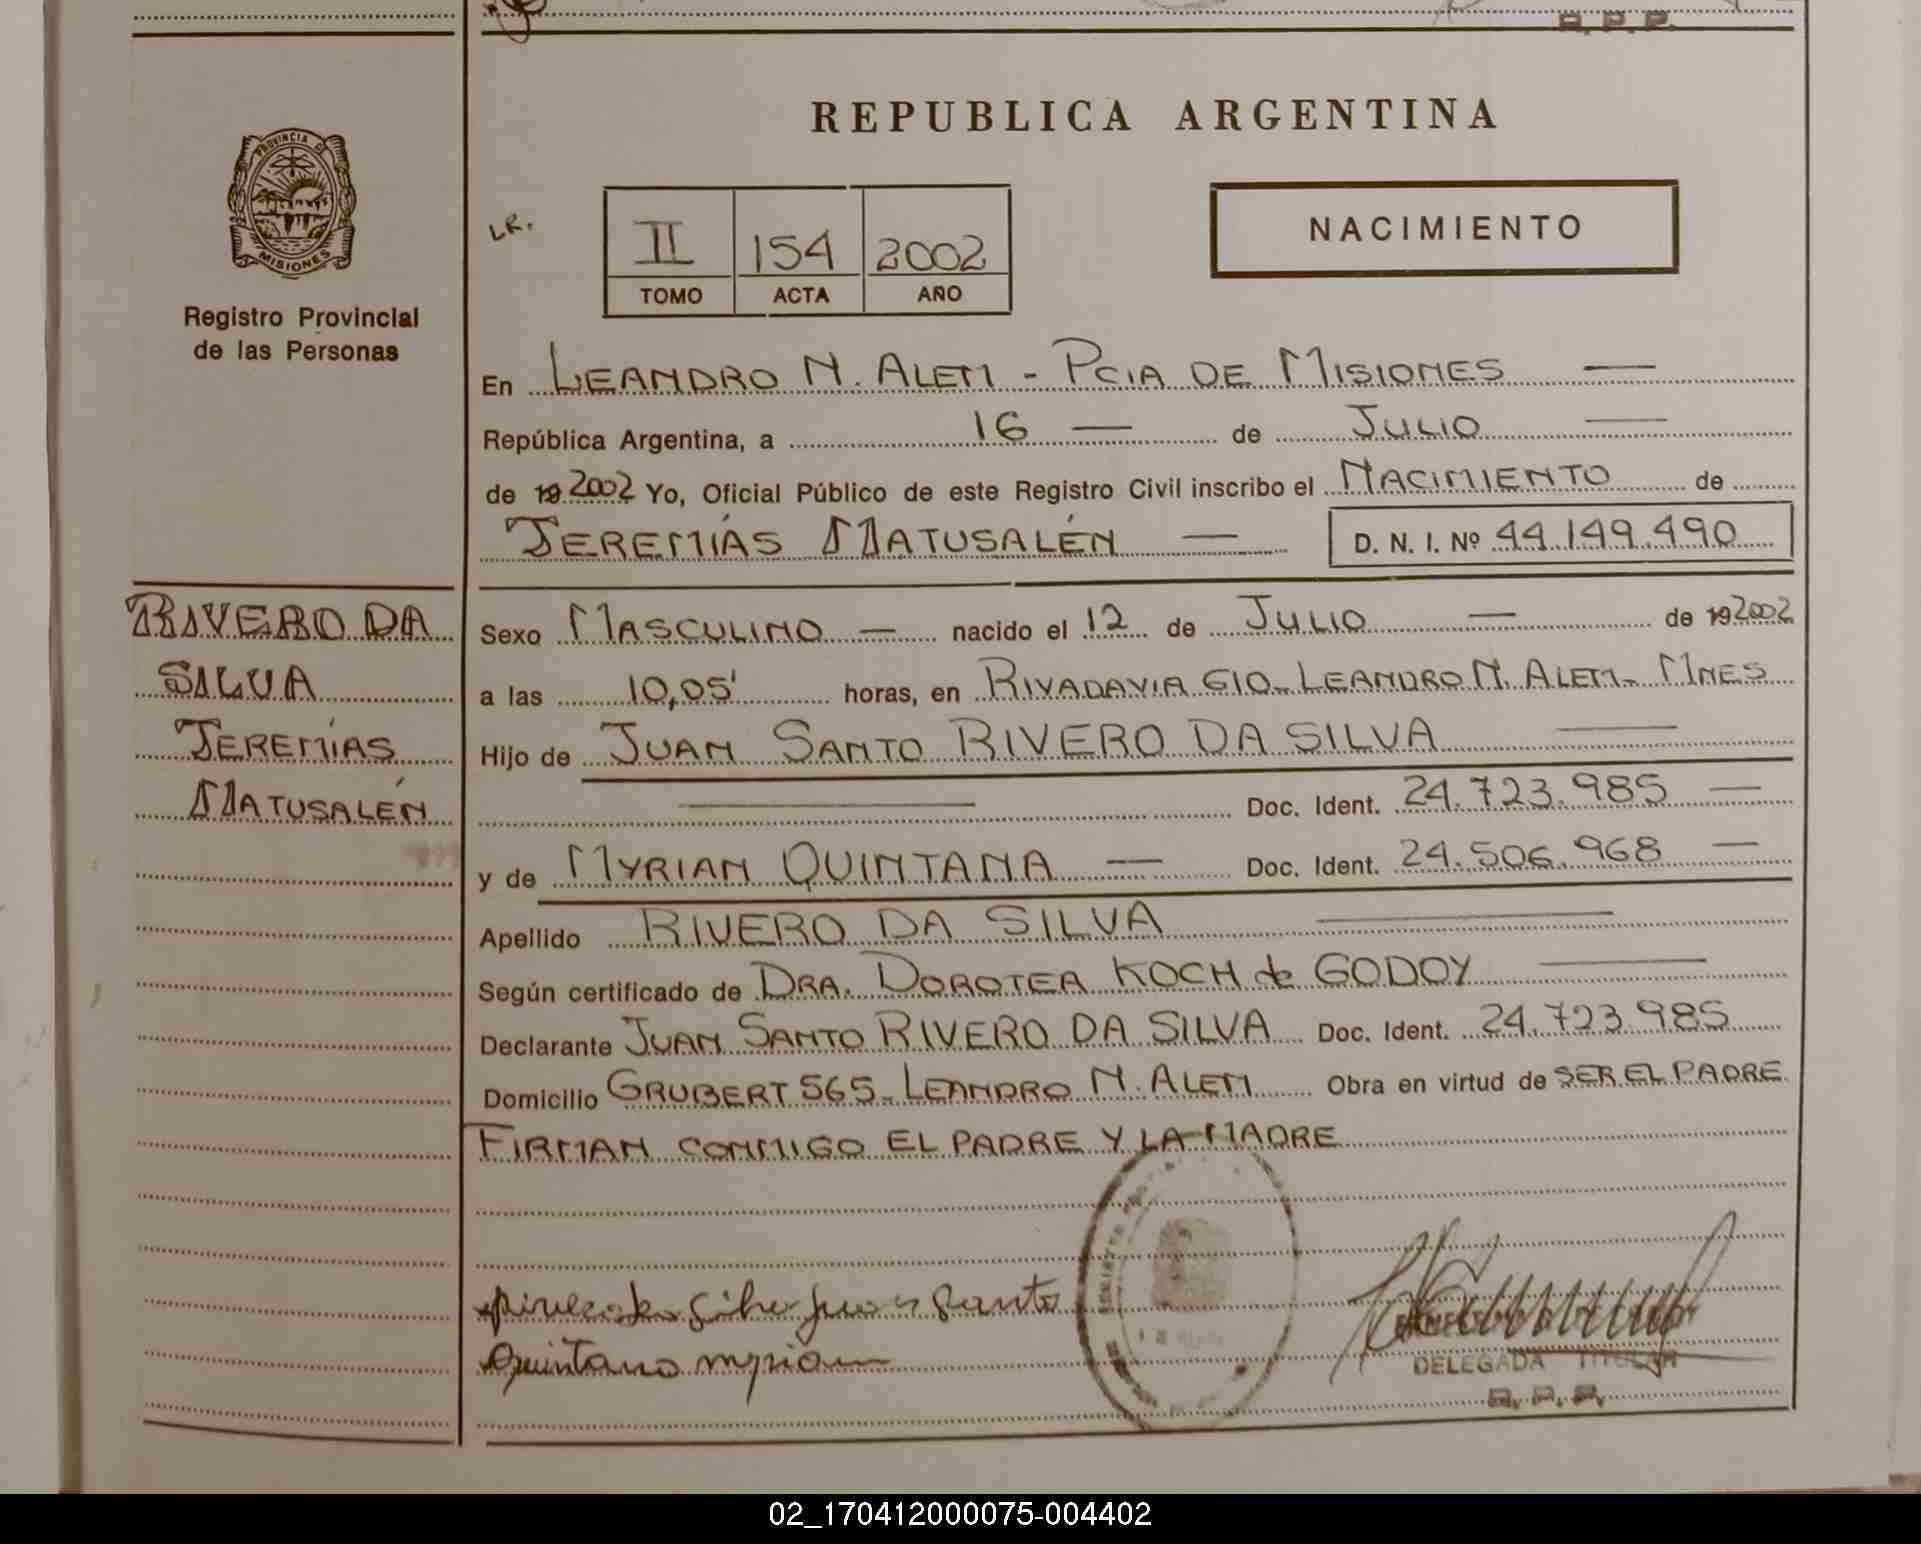 R. P. P.
REPUBLICA ARGENTINA
PROVINCIA DE
MISIONES
Registro Provincial
de las Personas
LR.
II 154 2002
TOMO ACTA AÑO
NACIMIENTO
En LEANDRO N. ALEM - PCIA DE MISIONES —
República Argentina, a 16 — de JULIO —
de 19 2002 Yo, Oficial Público de este Registro Civil inscribo el NACIMIENTO de
JEREMÍAS MATUSALÉN — D. N. I. Nº 44.149.490
RIVERO DA
SILVA
JEREMÍAS
MATUSALÉN
Sexo MASCULINO — nacido el 12 de JULIO — de 19 2002
a las 10,05' horas, en RIVADAVIA 610- LEANDRO N. ALEM- MNES
Hijo de JUAN SANTO RIVERO DA SILVA —
— Doc. Ident. 24.723.985 —
y de MYRIAN QUINTANA — Doc. Ident. 24.506.968 —
Apellido RIVERO DA SILVA —
Según certificado de DRA. DOROTEA KOCH de GODOY —
Declarante JUAN SANTO RIVERO DA SILVA Doc. Ident. 24.723.985
Domicilio GRUBERT 565- LEANDRO N. ALEM Obra en virtud de SER EL PADRE
FIRMAN CONMIGO EL PADRE Y LA MADRE
Juan Santo
Quintana Myrian
DELEGADA TITULAR
R. P. P.
02_170412000075-004402